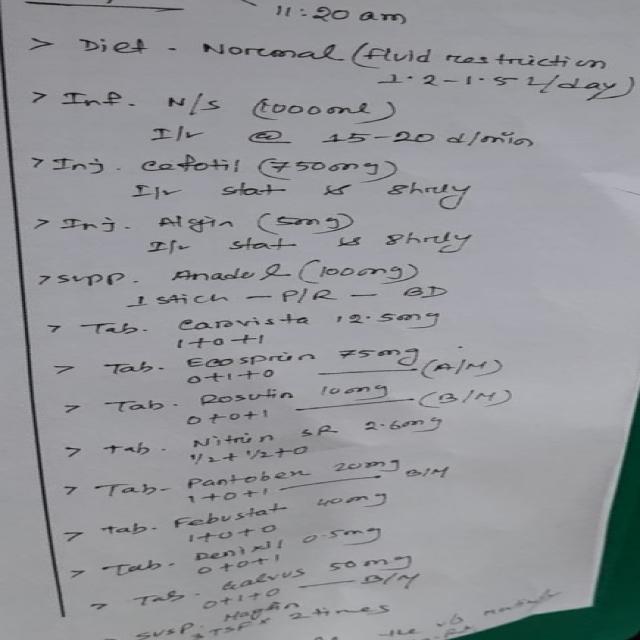 11:20 am
> Diet - Normal (fluid restriction
1.2-1.5 L/day)
> Inf. N/S (1000ml)
I/v @ 15-20 d/min
> Inj. Cefotil (750mg)
I/v stat & 8hrly
> Inj. Algin (5mg)
I/v stat & 8hrly
> Supp. Anadol (100mg)
1 stick - P/R - BD
> Tab. Carovista 12.5mg
1+0+1
> Tab. Ecosprin 75mg
0+1+0 (A/M)
> Tab. Rosutin 10mg
0+0+1 (B/M)
> tab. Nitrin SR 2.6mg
1/2+1/2+0
> Tab- Pantobex 20mg
1+0+1 B/M
> tab. Febustat 40mg
1+0+0
> Tab. Denixil 0.5mg
0+0+1
> Tab. Galvus 50mg
0+1+0 B/M
Susp.
TSF 2 times
the